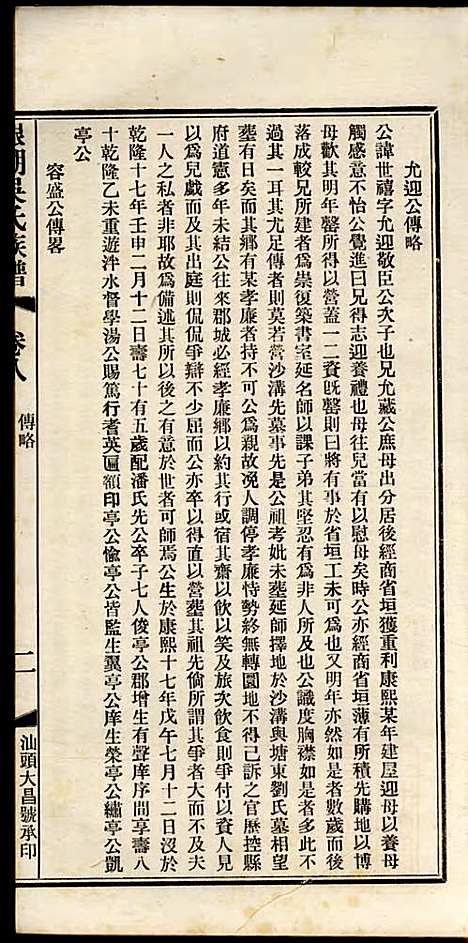 允迎公傳略
公諱世禧字允迎敬臣公次子也兄允藏公庶母出分居後經商省垣獲重利康熙某年建屋迎母以養母
觸感意不怡公覺進曰兄得志迎養禮也母往兒當有以慰母矣時公亦經商省垣薄有所積先購地以博
母歡其明年罄所得以營蓋一二資既罄則曰將有事於省垣工未可爲也又明年亦然如是者數歲而後
落成較兄所建者爲崇復築書室延名師以課子弟其堅忍有爲非人所及也公識度胸襟如是者多此不
過其一耳其尤足傳者則莫若營沙溝先墓事先是公祖考妣未塟延師擇地於沙溝與塘東劉氏墓相望
塟有日矣而其鄉有某孝廉者持不可公爲親故浼人調停孝廉恃勢終無轉圜地不得已訴之官歷控縣
府道憲多年未結公往來郡城必經孝廉鄉以約其行或宿其齋以飲以笑及旅次飲食則爭付以資人見
以爲兒戲而及其出庭則侃侃爭辯不少屈而公亦卒以得直以營塟其祖先倘所謂其爭者大而不及夫
一人之私者非耶故爲備述其所以後之有意於世者可師焉公生於康熙十七年戊午七月十二日沒於
乾隆十七年壬申二月十二日壽七十有五歲配潘氏先公卒子七人俊亭公郡增生有聲庠序間享壽八
十乾隆乙未重遊泮水督學湯公賜篤行耆英匾額印亭公愉亭公皆監生翼亭公庠生榮亭公繡亭公凱
亭公
容盛公傳畧
湖吳氏族譜
卷八
傳略
二
汕頭大昌號承印